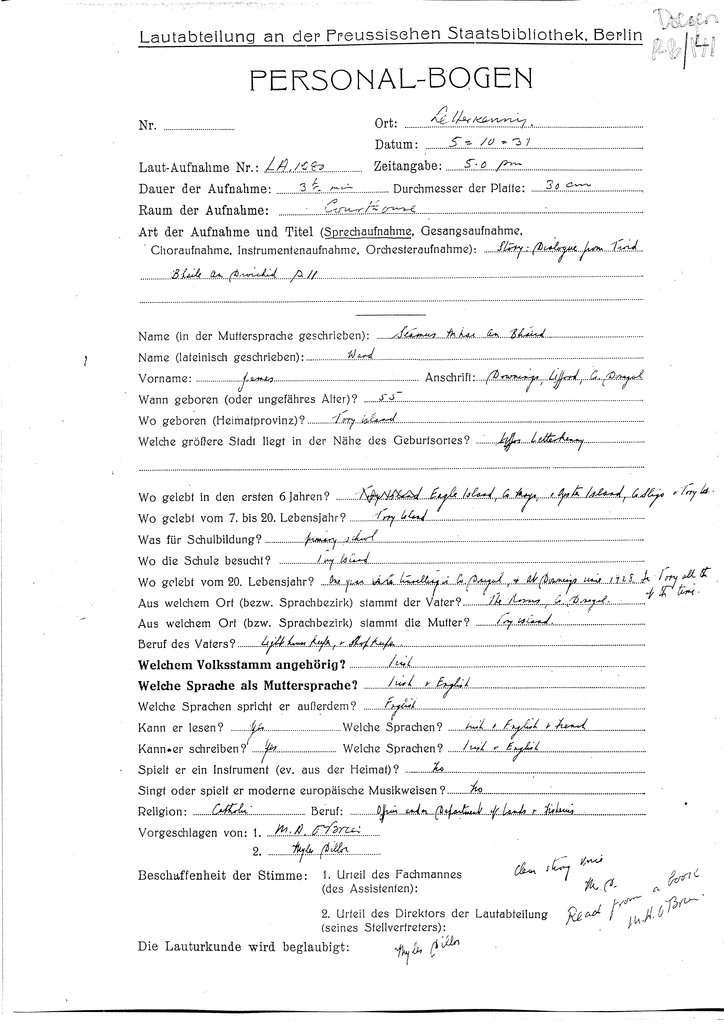 Doegen
Lautabteilung an der Preussischen Staatsbibliothek, Berlin
PERSONAL-BOGEN
Nr.
Ort: Letterkenny.
Datum: 5 = 10 = 31
Laut-Aufnahme Nr.: LA. Zeitangabe: 5.0 pm
Dauer der Aufnahme: 3½ min Durchmesser der Platte: 30 cm
Raum der Aufnahme: Courthouse
Art der Aufnahme und Titel (Sprechaufnahme, Gesangsaufnahme,
Choraufnahme, Instrumentenaufnahme, Orchesteraufnahme): Story: Dialogue from
Bhaile an p 11
Name (in der Muttersprache geschrieben): Séamus an Bháird
Name (lateinisch geschrieben): Ward
Vorname: James Anschrift: Downings, Co. Donegal
Wann geboren (oder ungefähres Alter)? 55
Wo geboren (Heimatprovinz)? Tory island
Welche größere Stadt liegt in der Nähe des Geburtsortes? Letterkenny
Wo gelebt in den ersten 6 Jahren? Eagle Island, Co Mayo, Island, Co. Sligo + Tory Is.
Wo gelebt vom 7. bis 20. Lebensjahr? Tory Island
Was für Schulbildung? primary school
Wo die Schule besucht? Tory Island
Wo gelebt vom 20. Lebensjahr? One year travelling in Co. Donegal, + at Downings since 1928. In Tory all the
of the time.
Aus welchem Ort (bezw. Sprachbezirk) stammt der Vater? The Rosses, Co. Donegal.
Aus welchem Ort (bezw. Sprachbezirk) stammt die Mutter? Tory island.
Beruf des Vaters? Light house keeper, + shop keeper.
Welchem Volksstamm angehörig? Irish
Welche Sprache als Muttersprache? Irish + English
Welche Sprachen spricht er außerdem? English
Kann er lesen? Yes Welche Sprachen? Irish + English + French
Kann er schreiben? Yes Welche Sprachen? Irish + English
Spielt er ein Instrument (ev. aus der Heimat)? No
Singt oder spielt er moderne europäische Musikweisen? No
Religion: Catholic Beruf: Officer under Department of Lands + Fisheries
Vorgeschlagen von: 1. M. H. O'Brien
2. Myles Dillon
Beschaffenheit der Stimme: 1. Urteil des Fachmannes
(des Assistenten):
Clear strong voice
M. D.
2. Urteil des Direktors der Lautabteilung
(seines Stellvertreters):
Read from a book
M. H. O'Brien
Die Lauturkunde wird beglaubigt: Myles Dillon